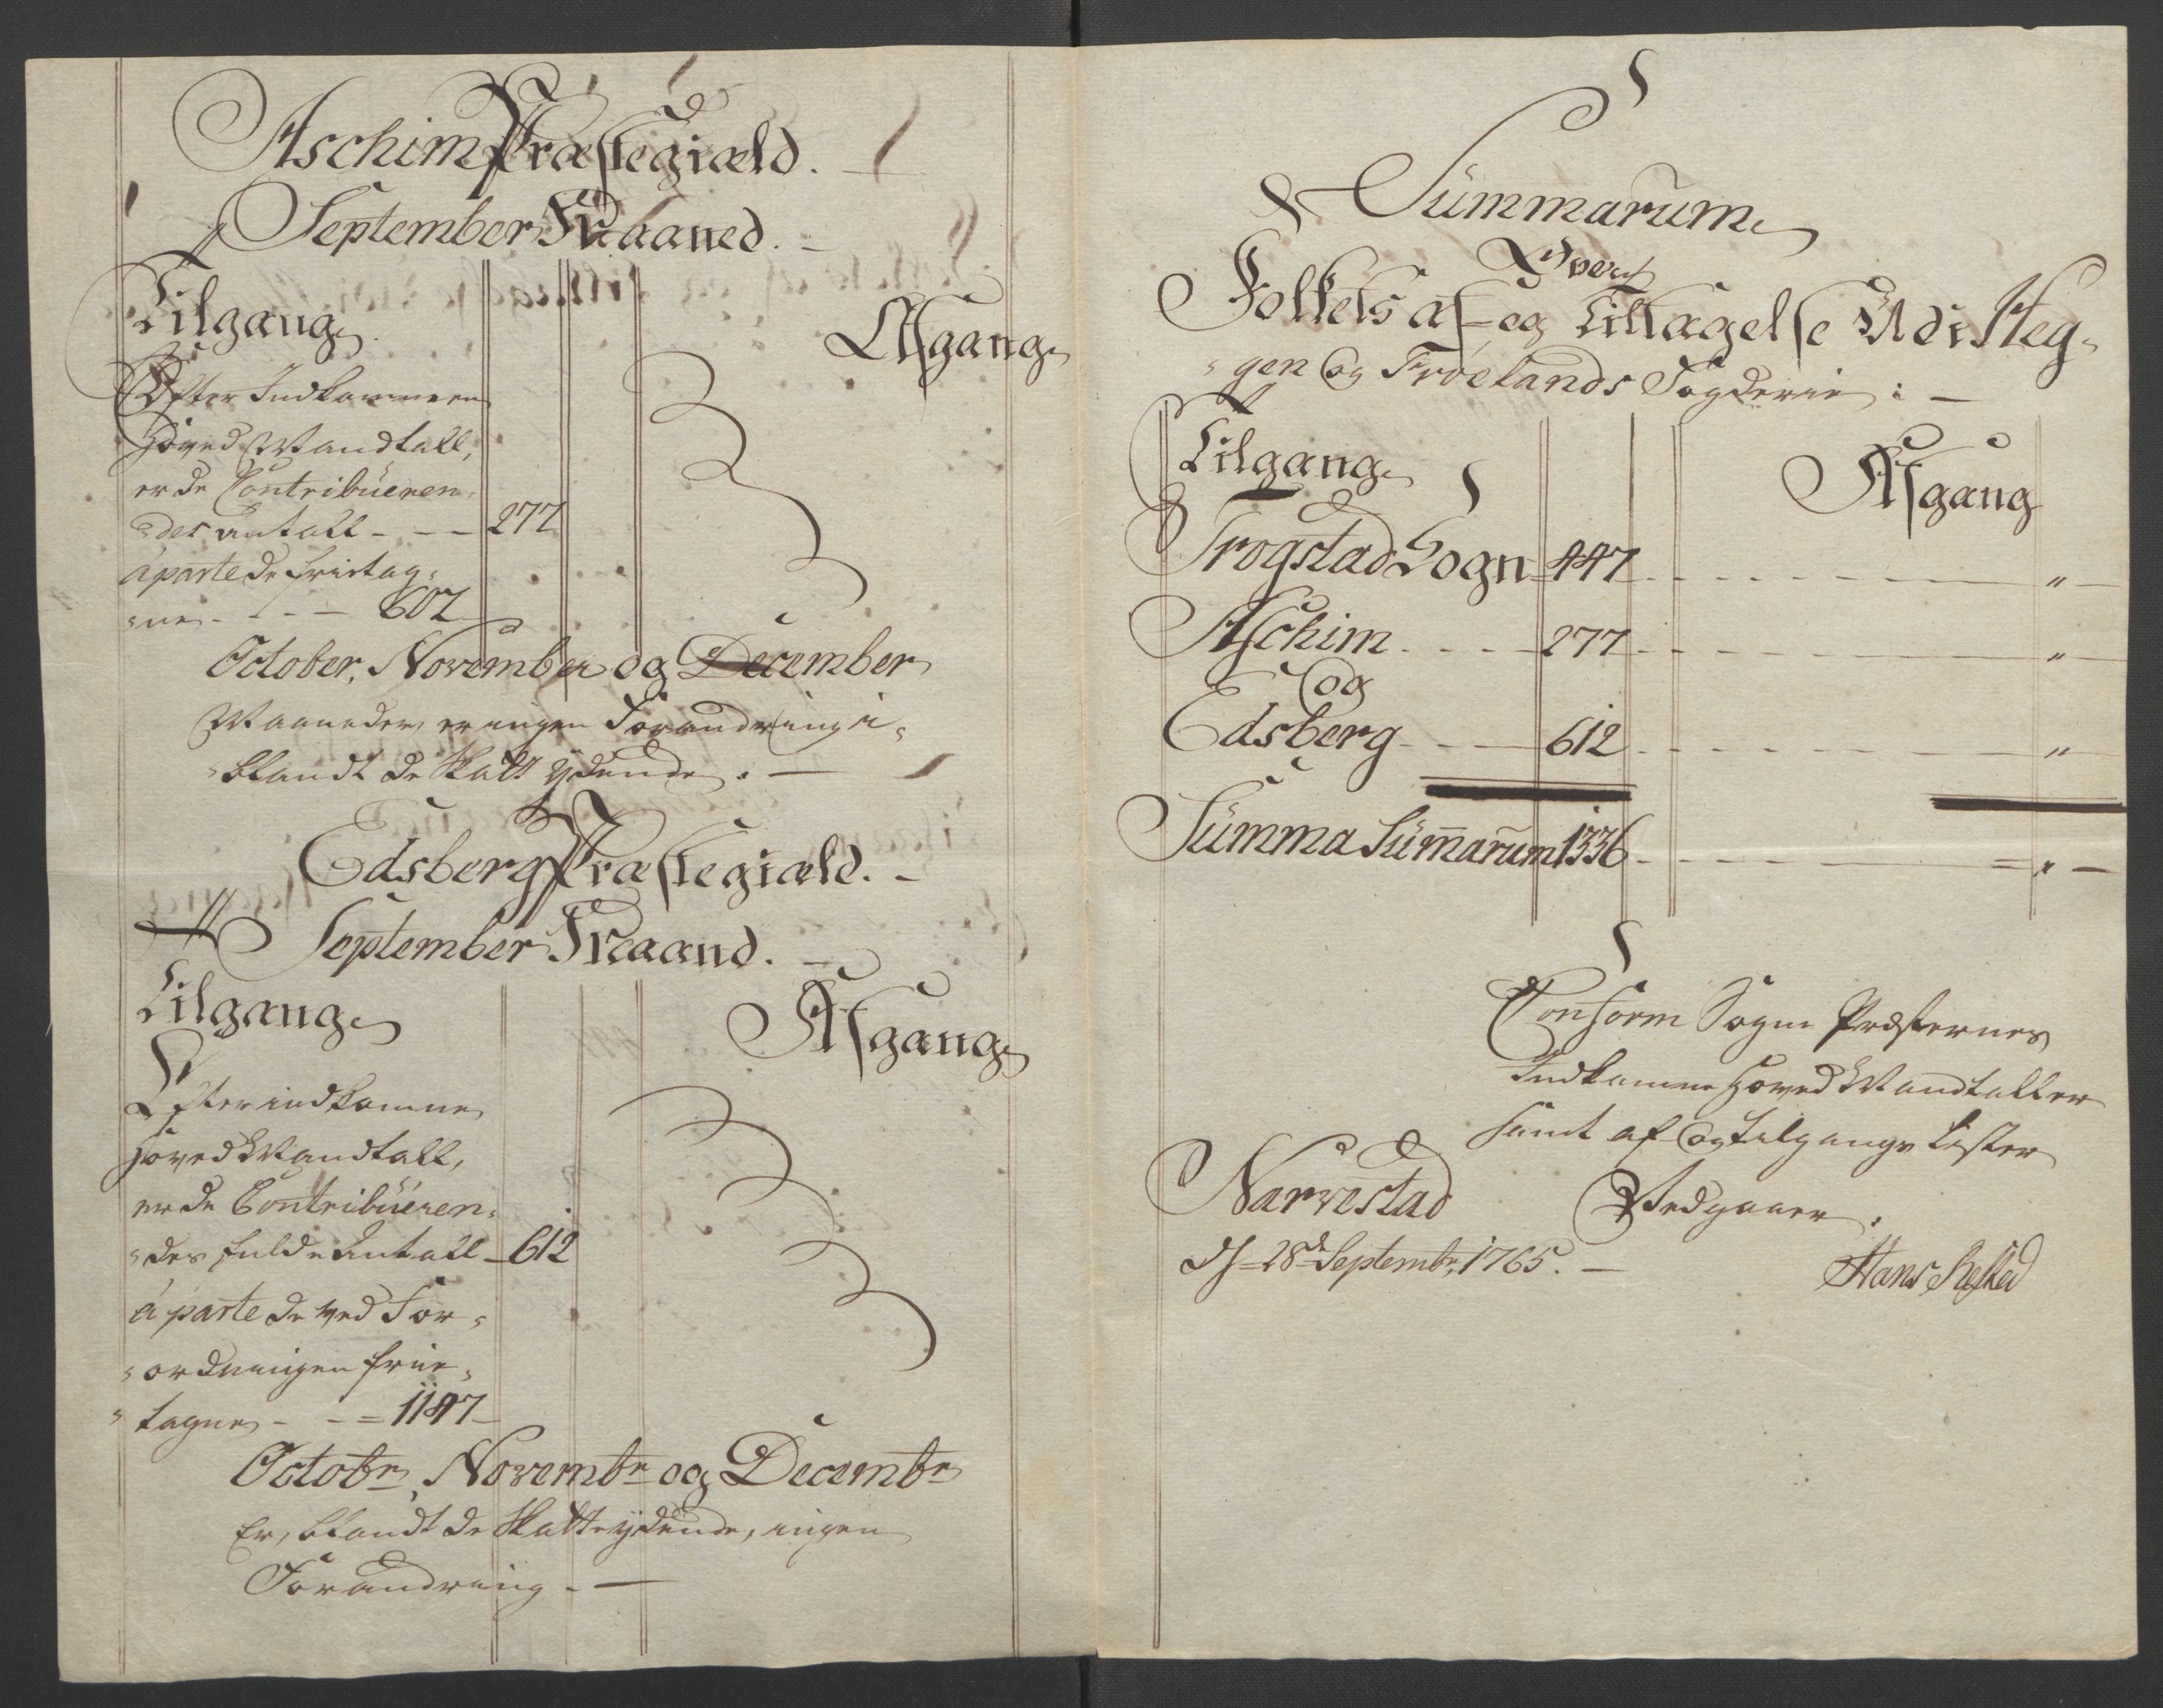 Aschim Præstegiæld. —
September Maaned. —
Tilgang
Afgang
Efter Indkommen
Hoved Mandtall,
er de Contribüeren-
des antall - - - 277
áparte de fritag-
ne - - - 607
October, November og December
Maaneder er ingen Forandring i-
blandt de Skatt ydende. —
Edsberg Præstegiæld. —
September Maand. —
Tilgang
Afgang
Efter indkomne
Hoved Mandtall,
er de Contribüeren-
des fulde Antall - 612
á parte de ved For-
ordningen frie-
tagne - - - 1147
Octobr, Novembr og Decembr
Er, blandt de Skatt ydende, ingen
Forandring. —
Summarum
Over
Folkets af- og Tiltagelse Udi Heg-
gen Og Frøelands Fogderie: —
Tilgang
Afgang
Trogstad Sogn 447 - - - "
Aschim - - - 277 - - - "
Og
Edsberg - - - 612 - - - "
Summa Sum̄arum 1336 - - - " —
Conform Sogne Præsternes
Indkomne Hoved Mandtaller
samt af Og tilgangs Lister
Narvestad Vedgaaer.
d = 28de Septembr. 1765. —
Hans